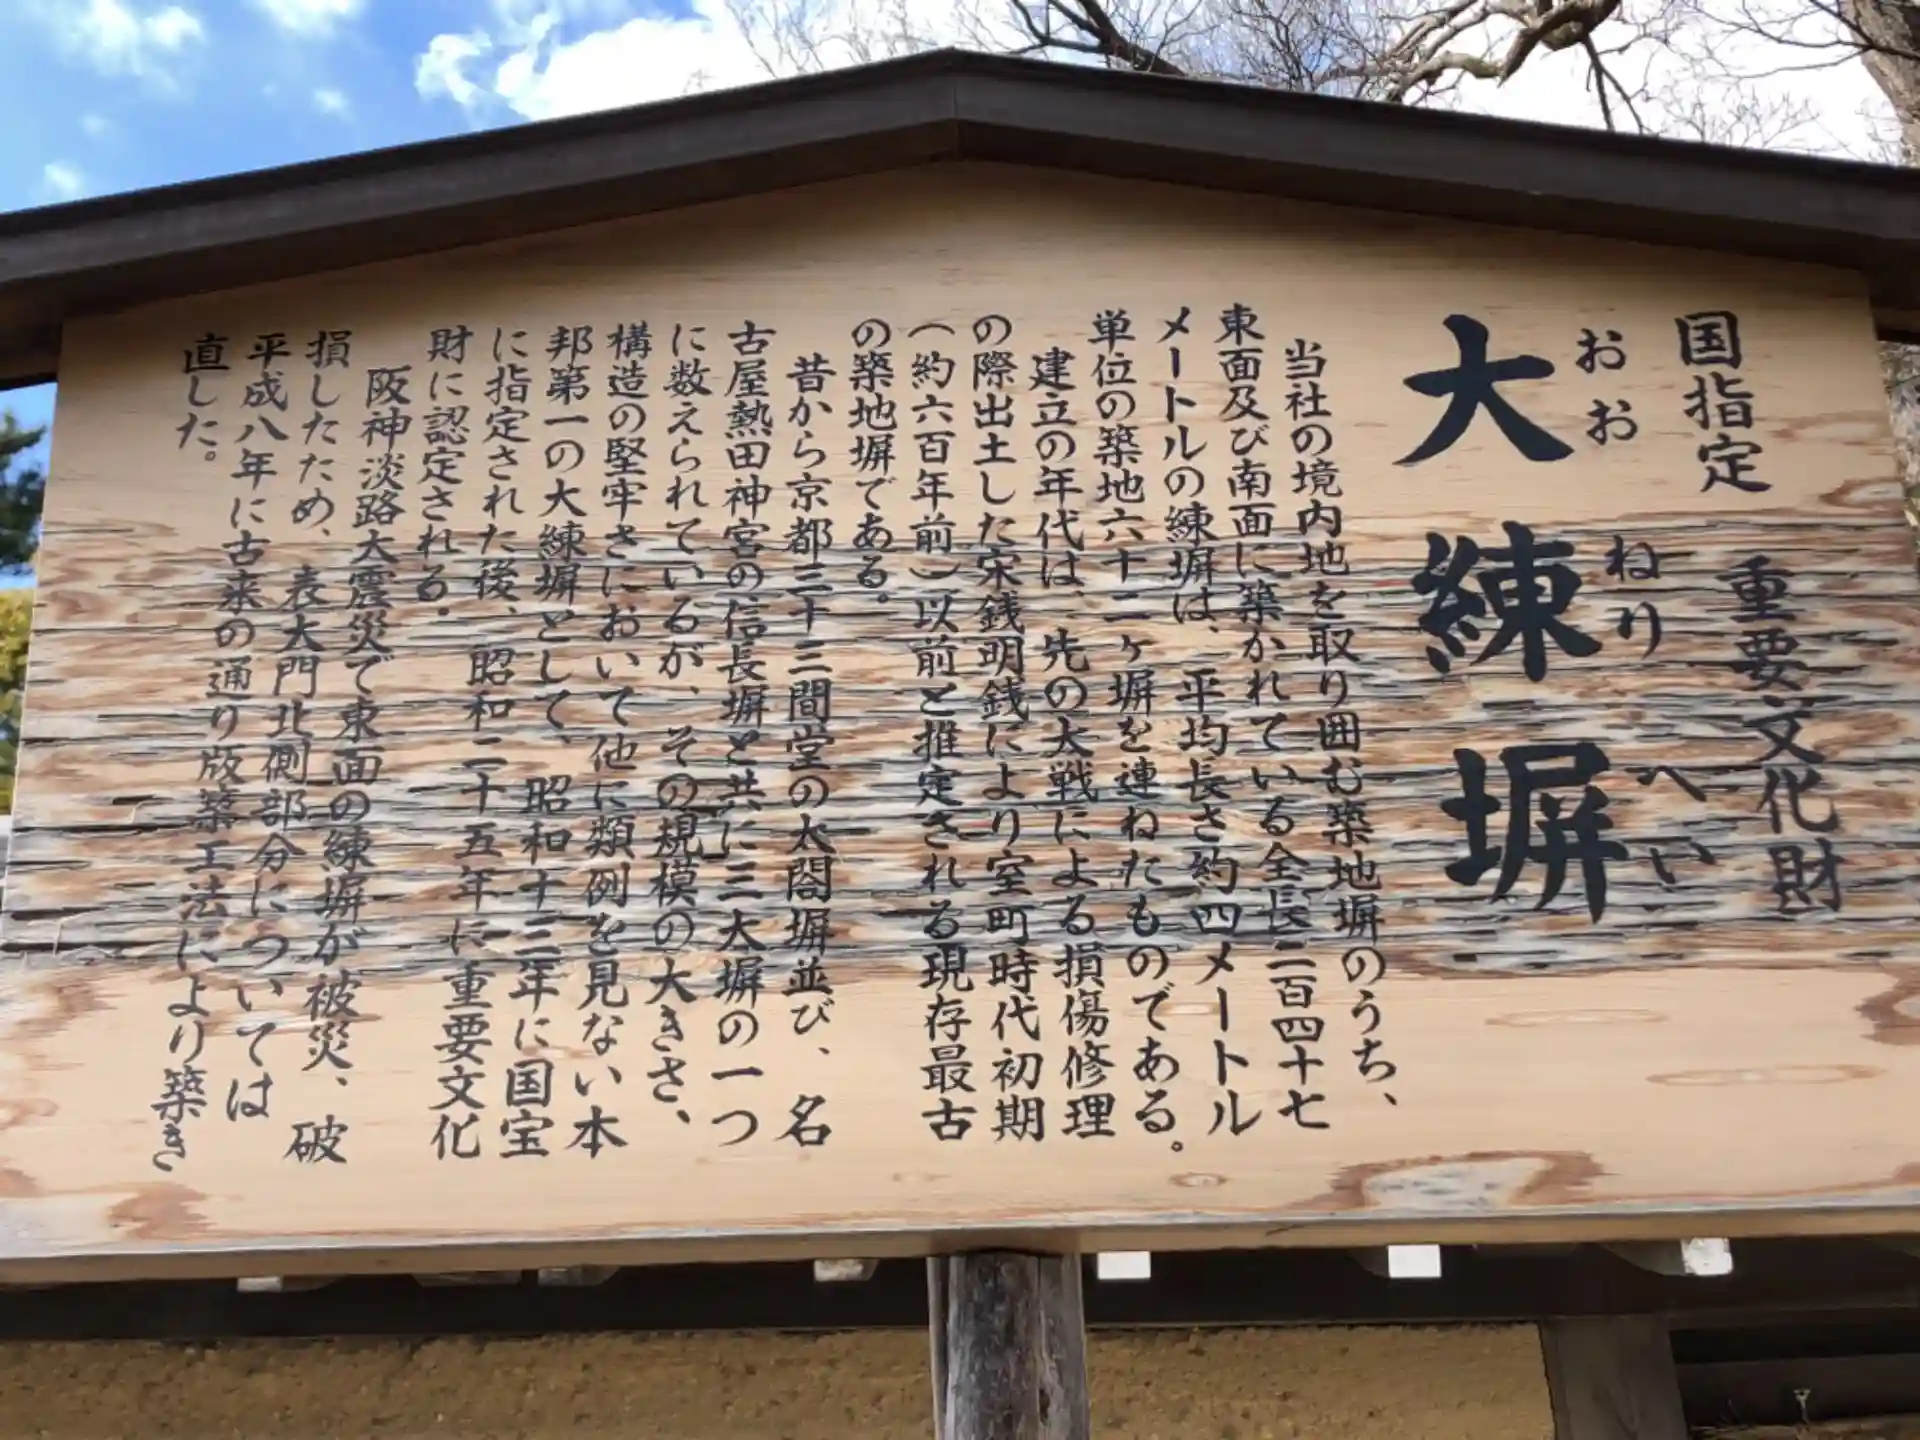 国指定 重要文化財
おお ねり へい
大練塀
当社の境内地を取り囲む築地塀のうち、
東面及び南面に築かれている全長二百四十七
メートルの練塀は、平均長さ約四メートル
単位の築地六十二ヶ塀を連ねたものである。
建立の年代は、先の大戦による損傷修理
の際出土した宋銭明銭により室町時代初期
(約六百年前)以前と推定される現存最古
の築地塀である。
昔から京都三十三間堂の太閤塀並び、名
古屋熱田神宮の信長塀と共に三大塀の一つ
に数えられているが、その規模の大きさ、
構造の堅牢さにおいて他に類例を見ない本
邦第一の大練塀として、昭和十三年に国宝
に指定された後、昭和二十五年に重要文化
財に認定される。
阪神淡路大震災で東面の練塀が被災、破
損したため、表大門北側部分については
平成八年に古来の通り版築工法により築き
直した。